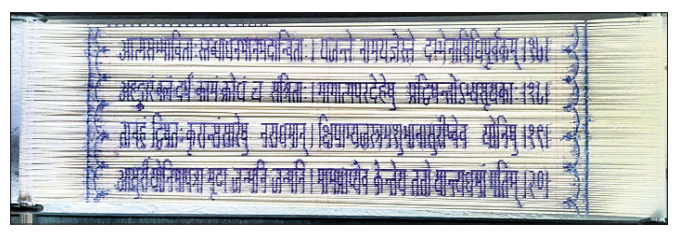 आत्मसम्भाविताः स्तब्धा धनमानमदान्विताः । यजन्ते नामयज्ञैस्ते दम्भेनाविधिपूर्वकम् ।१७।
अहङ्कारं बलं दर्पं कामं क्रोधं च संश्रिताः । मामात्मपरदेहेषु प्रद्विषन्तोऽभ्यसूयकाः ।१८।
तानहं द्विषतः क्रूरान्संसारेषु नराधमान् । क्षिपाम्यजस्रमशुभानासुरीष्वेव योनिषु ।१९।
आसुरीं योनिमापन्ना मूढा जन्मनि जन्मनि । मामप्राप्यैव कौन्तेय ततो यान्त्यधमां गतिम् ।२०।